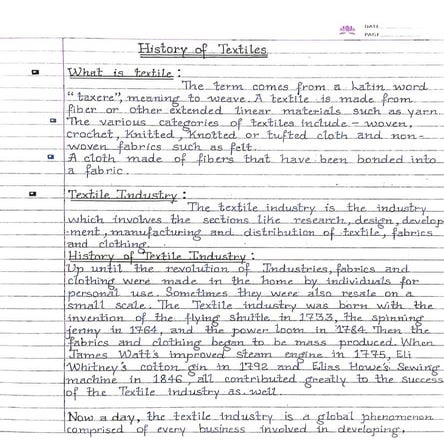 DATE
PAGE
History of Textiles
What is textile :
The term comes from a Latin word
"taxere", meaning to weave. A textile is made from
fiber or other extended linear materials such as yarn.
The various categories of textiles include - woven,
crochet, knitted, knotted or tufted cloth and non-
woven fabrics such as felt.
A cloth made of fibers that have been bonded into
a fabric.
Textile Industry :
The textile industry is the industry
which involves the sections like research, design, develop
-ment, manufacturing and distribution of textile, fabrics
and clothing.
History of Textile Industry :
Up until the revolution of Industries, fabrics and
clothing were made in the home by individuals for
personal use. Sometimes they were also resale on a
small scale. The Textile industry was born with the
invention of the flying shuttle in 1733, the spinning
jenny in 1764, and the power loom in 1784. Then the
fabrics and clothing began to be mass produced. When
James Watt's improved steam engine in 1775, Eli
Whitney's cotton gin in 1792 and Elias Howe's Sewing
machine in 1846, all contributed greatly to the success
of the Textile industry as well.
Now a day, the textile industry is a global phenomenon
comprised of every business involved in developing,